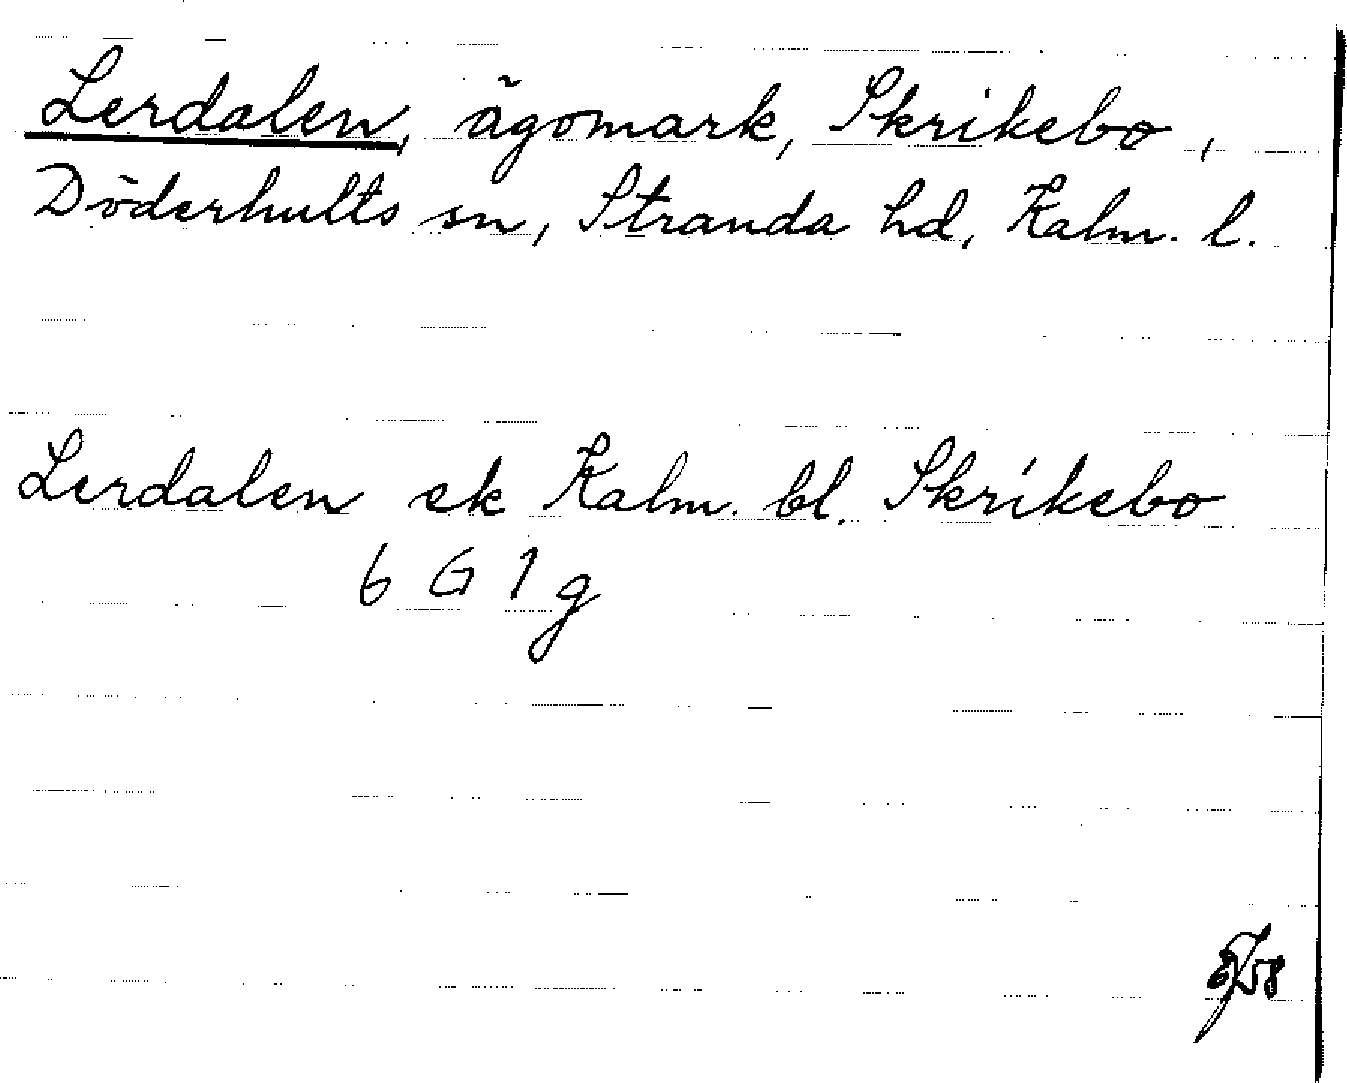 Lerdalen, ägomark, Skrikebo,
Döderhults sn, Stranda hd, Kalm. l.
Lerdalen ek Kalm. bl. Skrikebo
6 G 1 g